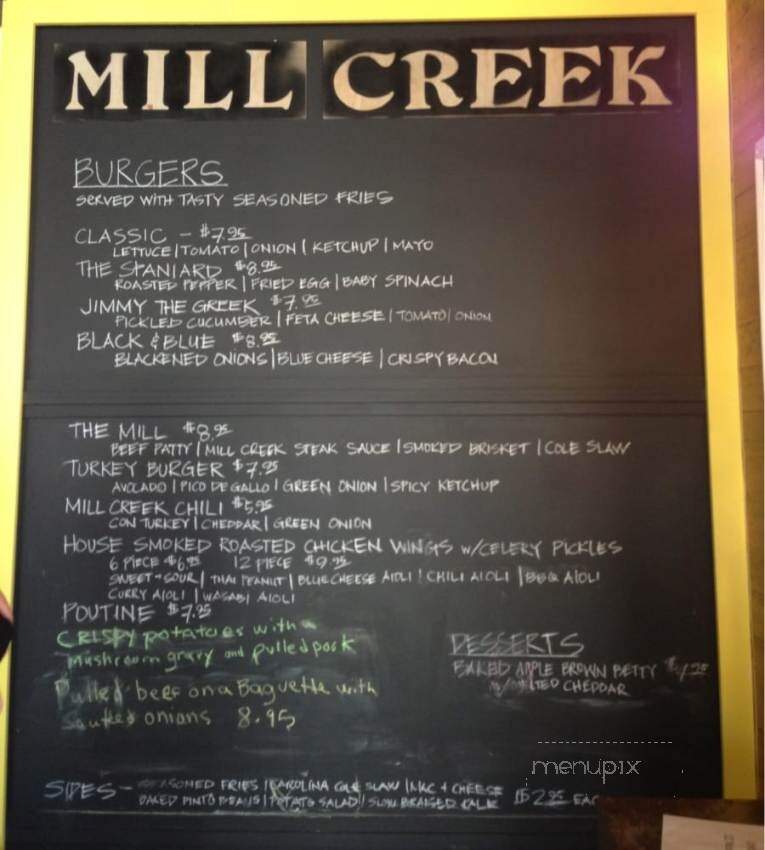 MILL CREEK
BURGERS
SERVED WITH TASTY SEASONED FRIES
CLASSIC - $7.95
LETTUCE | TOMATO | ONION | KETCHUP | MAYO
THE STANIARD $8.95
ROASTED PEPPER | FRIED EGG | BABY SPINACH
JIMMY THE GREEK $7.95
PICKLED CUCUMBER | FETA CHEESE | TOMATO | ONION
BLACK & BLUE $8.95
BLACKENED ONIONS | BLUE CHEESE | CRISPY BACON
THE MILL $8.95
BEEF PATTY | MILL CREEK STEAK SAUCE | SMOKED BRISKET | COLE SLAW
TURKEY BURGER $7.95
AVOCADO | PICO DE GALLO | GREEN ONION | SPICY KETCHUP
MILL CREEK CHILI $5.95
CON TURKEY | CHEDDAR | GREEN ONION
HOUSE SMOKED ROASTED CHICKEN WINGS W/CELERY PICKLES
6 PIECE $6.95 12 PIECE $9.95
SWEET + SOUR | THAI PEANUT | BLUE CHEESE AIOLI | CHILI AIOLI | BBQ AIOLI
CURRY AIOLI | WASABI AIOLI
POUTINE $7.95
CRISPY potatoes with a
Mushroom gravy and pulled pork
Pulled beef on a Baguette with
Sauteed onions 8.95
DESSERTS
BAKED APPLE BROWN BETTY
CHEDDAR
SIDES - SEASONED FRIES | CAROLINA COLE SLAW | MAC + CHEESE
BAKED PINTO BEANS | POTATO SALAD | SLOW BRAISED KALE $2.95
menupix